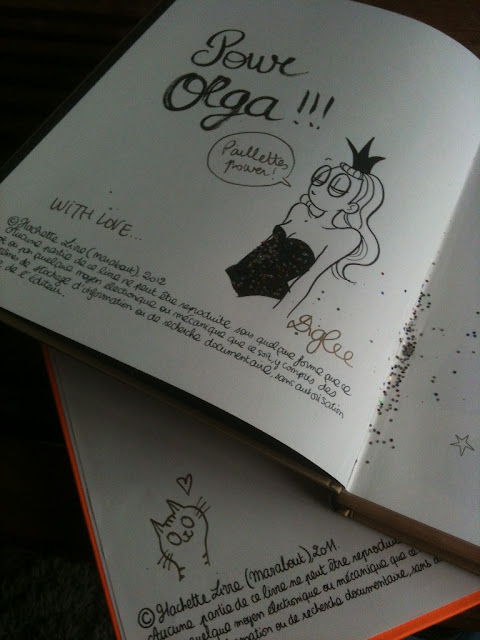 Pour
Olga !!!
Paillettes
power!
WITH LOVE...
© Hachette Livre (marabout) 2012
Aucune partie de ce livre ne peut être reproduite sous quelque forme que ce
ou par quelque moyen électronique ou mécanique que ce soit, y compris des
de stockage d'information ou de recherche documentaire, sans autorisation
de l'éditeur.
Diglee
© Hachette Livre (Marabout) 2011.
Aucune partie de ce livre ne peut être reproduite
quelque moyen électronique ou mécanique que ce
ou de recherche documentaire, sans